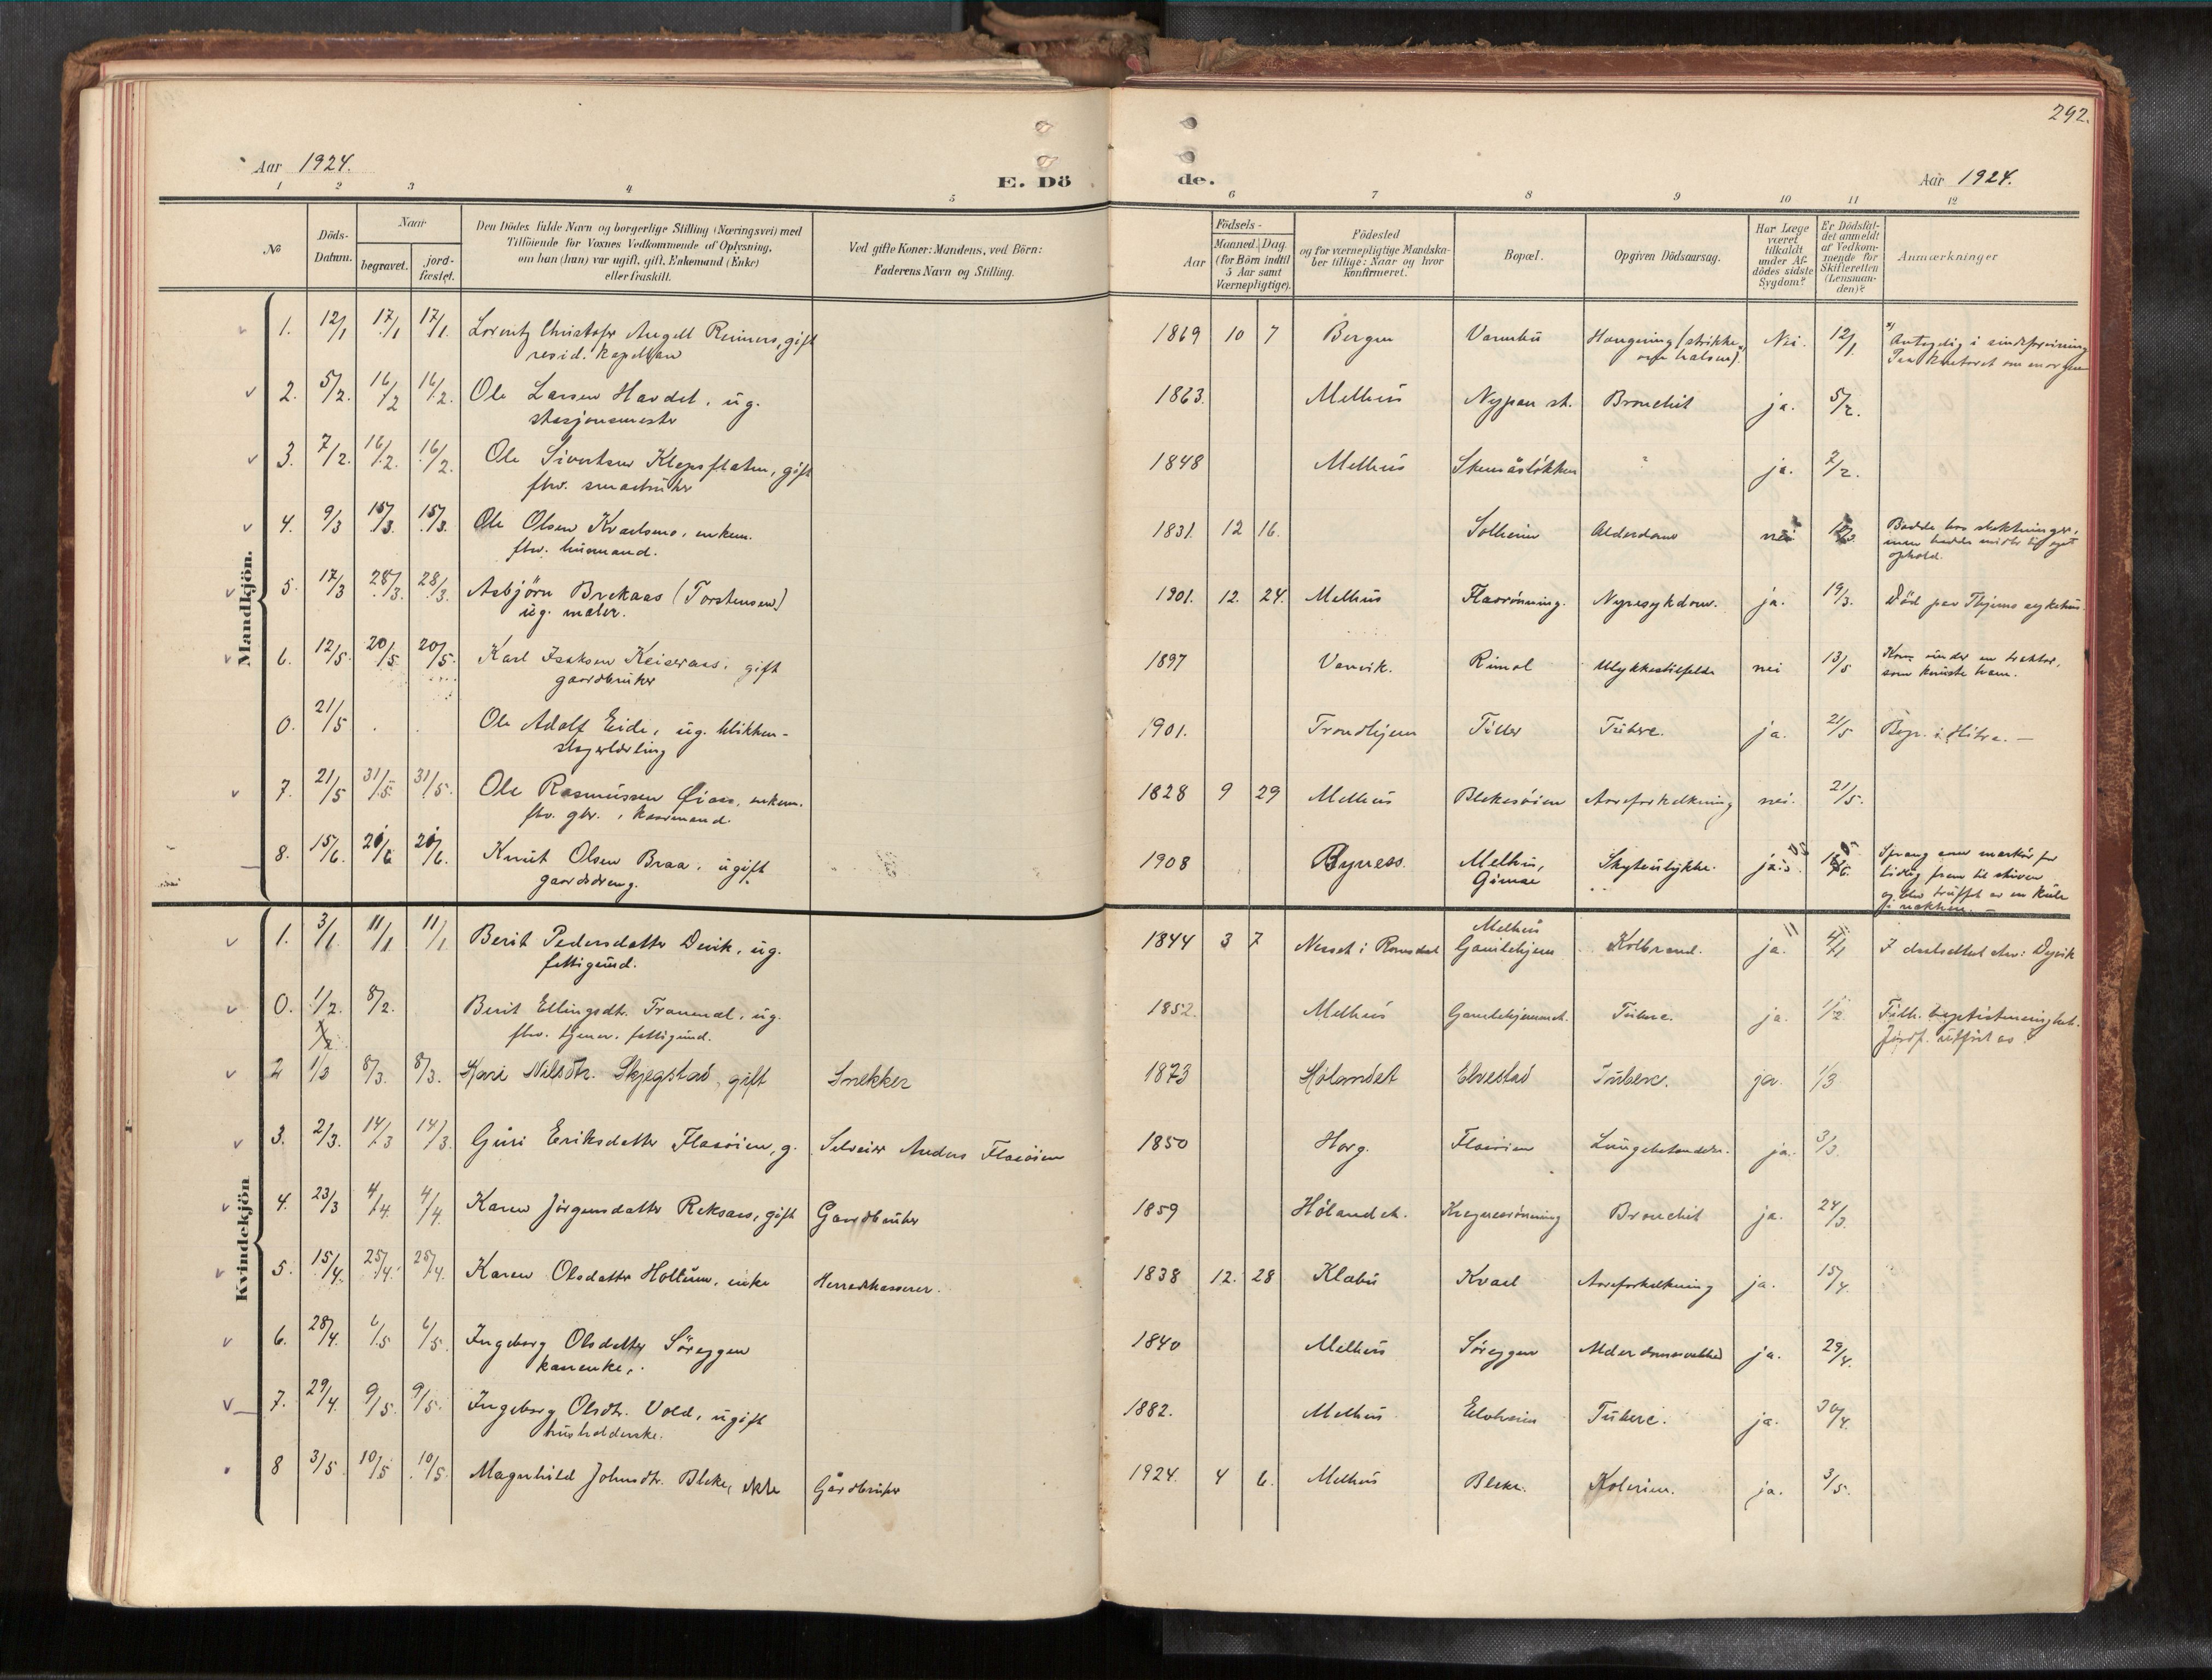 292.
Aar 1924.
E. Dö
de.
Aar 1924.
1 2 3 4 5 6 7 8 9 10 11 12
No
Döds-Datum.
Naar
begravet.
jord-fæstet.
Den Dödes fulde Navn og borgerlige Stilling (Næringsvei) med
Tilföiende for Voxnes Vedkommende af Oplysning,
om hun (han) var ugift, gift, Enkemand (Enke)
eller fraskilt.
Ved gifte Koner: Mandens, ved Börn:
Faderens Navn og Stilling.
Födsels-
Aar
Maaned. Dag.
(for Börn indtil
5 Aar samt
Værnepligtige).
Födested
og for værnepligtige Mandska-
ber tillige: Naar og hvor
konfirmeret.
Bopæl.
Opgiven Dödsaarsag.
Har Læge
været
tilkaldt
under Af-
dödes sidste
Sygdom?
Er Dödsfal-
det anmeldt
af Vedkom-
mende for
Skifteretten
(Lensman-
den)?
Anmærkninger
Mandkjön.
1. 12/1 17/1 17/1. Lorentz Christofer Angell Reimers, gift 1869 10 7 Bergen Varmbu Hængning (strikke Nei. 12/1.
resid. kapellan om halsen).
Antagelig i sindsforvirring
2. 5/2. 16/2 16/2. Ole Larsen Havdal, ug. 1863. Melhus Nypan st. Bronchit ja. 5/2.
stasjonsmester
3. 7/2. 16/2. 16/2. Ole Sivertsen Klepsflaten, gift 1848 Melhus " ja. 7/2.
fhv. smaabruker
4. 9/3 15/3 15/3. Ole Olsen Kvaelsmo, enkem. 1831. 12 16. Solheim Alderdom nei
fhv. husmand.
Bodde hos slektninger,
men hadde midler til eget
ophold.
5. 17/3 28/3. 28/3. Asbjörn Brekaas (Torstensen) 1901. 12. 24. Melhus Flaarönning. Nyresykdom. ja. 19/3. Död paa Thjems sykehus
ug. maler.
6. 12/5. 20/5 20/5. Karl Isaksen Keiseraas, gift 1897 Vanvik. Rimol Ulykkestilfelde nei 13/5
gaardbruker
Kom under en traktor,
som knuste ham.
0. 21/5 . . Ole Adolf Eide, ug. blikken- 1901. Trondhjem Tiller Tuberc. ja. 21/5 Begr. i Hitra. —
slagerlærling
7. 21/5 31/5 31/5. Ole Rasmussen Øiaas, enkem. 1828 9 29 Melhus Blekesöien Aareforkalkning nei. 21/5.
fhv. gbr., kaarmand.
8. 15/6. 20/6 20/6. Knut Olsen Braa, ugift 1908 Byness. Melhus, Skyteulykke. ja.
gaardsdreng. Gimse
Sprang som markör for
tidlig frem til skiven
og blev truffet av en kule
i nakken. —
Kvindekjön
1. 3/1 11/1 11/1 Berit Pedersdatter Devik, ug. 1844 3 7 Nesset i Romsdal Melhus Gamlehjem Kolbrand. ja. 4/1 I daabsattest står: Dyvik
fattigund.
0. 1/2. 8/2. Berit Ellingsdtr. Tranmal, ug. 1852. Melhus Gamlehjemmet. Tuberc. ja. 1/2
fhv. tjener. fattigund.
Tilh. baptistmenighet.
Jordf. utfört av
2 1/3 8/3. 8/3. Kari Nilsdtr. Skjegstad, gift Snekker 1873 Hølandet Elvestad Tuberc. ja. 1/3
3. 2/3. 14/3 14/3. Guri Eriksdatter Flaaöien, g. Selveier Anders Flaaöien 1850 Horg. Flaaöien Lungebetændelse. ja. 3/3.
4. 23/3 4/4. 4/4. Karen Jörgensdatter Reksaas, gift Gaardbruker 1859 Hölandet. Bronchit ja. 24/3.
5. 15/4. 25/4. 25/4. Karen Olsdatter Hollum, enke Herredkasserer. 1838 12. 28 Klæbu Kvael Aareforkalkning ja. 15/4.
6. 28/4. 6/5 6/5. Ingeborg Olsdatter Söreggen 1840 Melhus Söreggen Alderdomssvakhed ja. 29/4.
kaarenke.
7. 29/4. 9/5. 9/5. Ingeborg Olsdtr. Vold, ugift 1882. Melhus Tuberc. ja. 30/4.
husholderske.
8 3/5. 10/5 10/5. Magnhild Johnsdtr. Bleke, ekte Gårdbruker 1924. 4 6. Melhus Bleke. Kolerine. ja. 3/5.